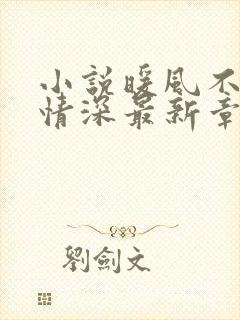 小說暖風不
情深最新章
劉劍文